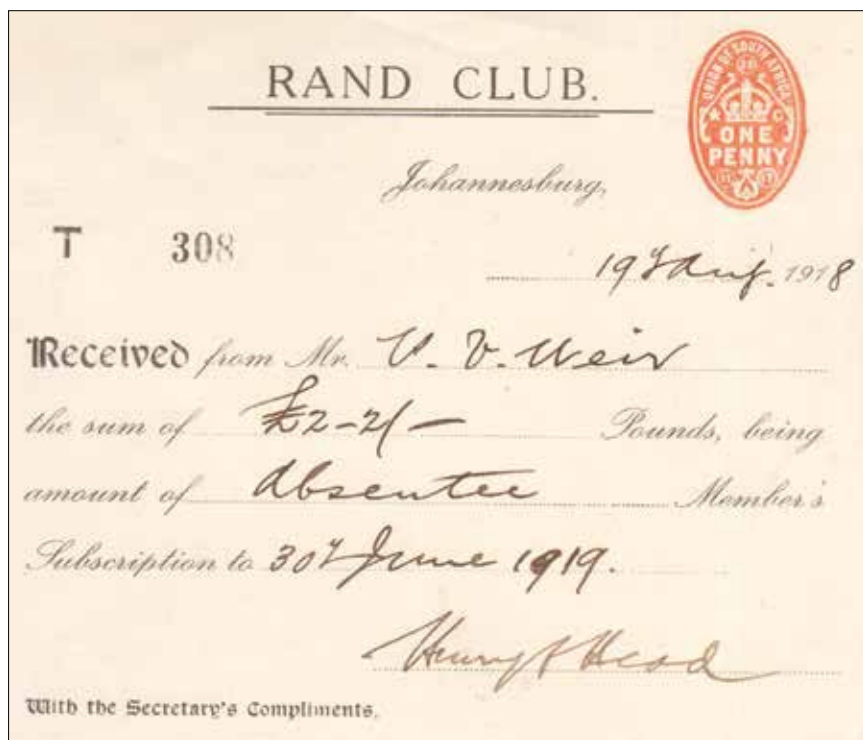 RAND CLUB.
UNION OF SOUTH AFRICA
ONE
PENNY
Johannesburg,
T 308
19th Aug. 1918
Received from Mr. V. V. Weir
the sum of £2-2/- Pounds, being
amount of Absentee Member's
Subscription to 30th June 1919.
Henry Head
With the Secretary's Compliments.